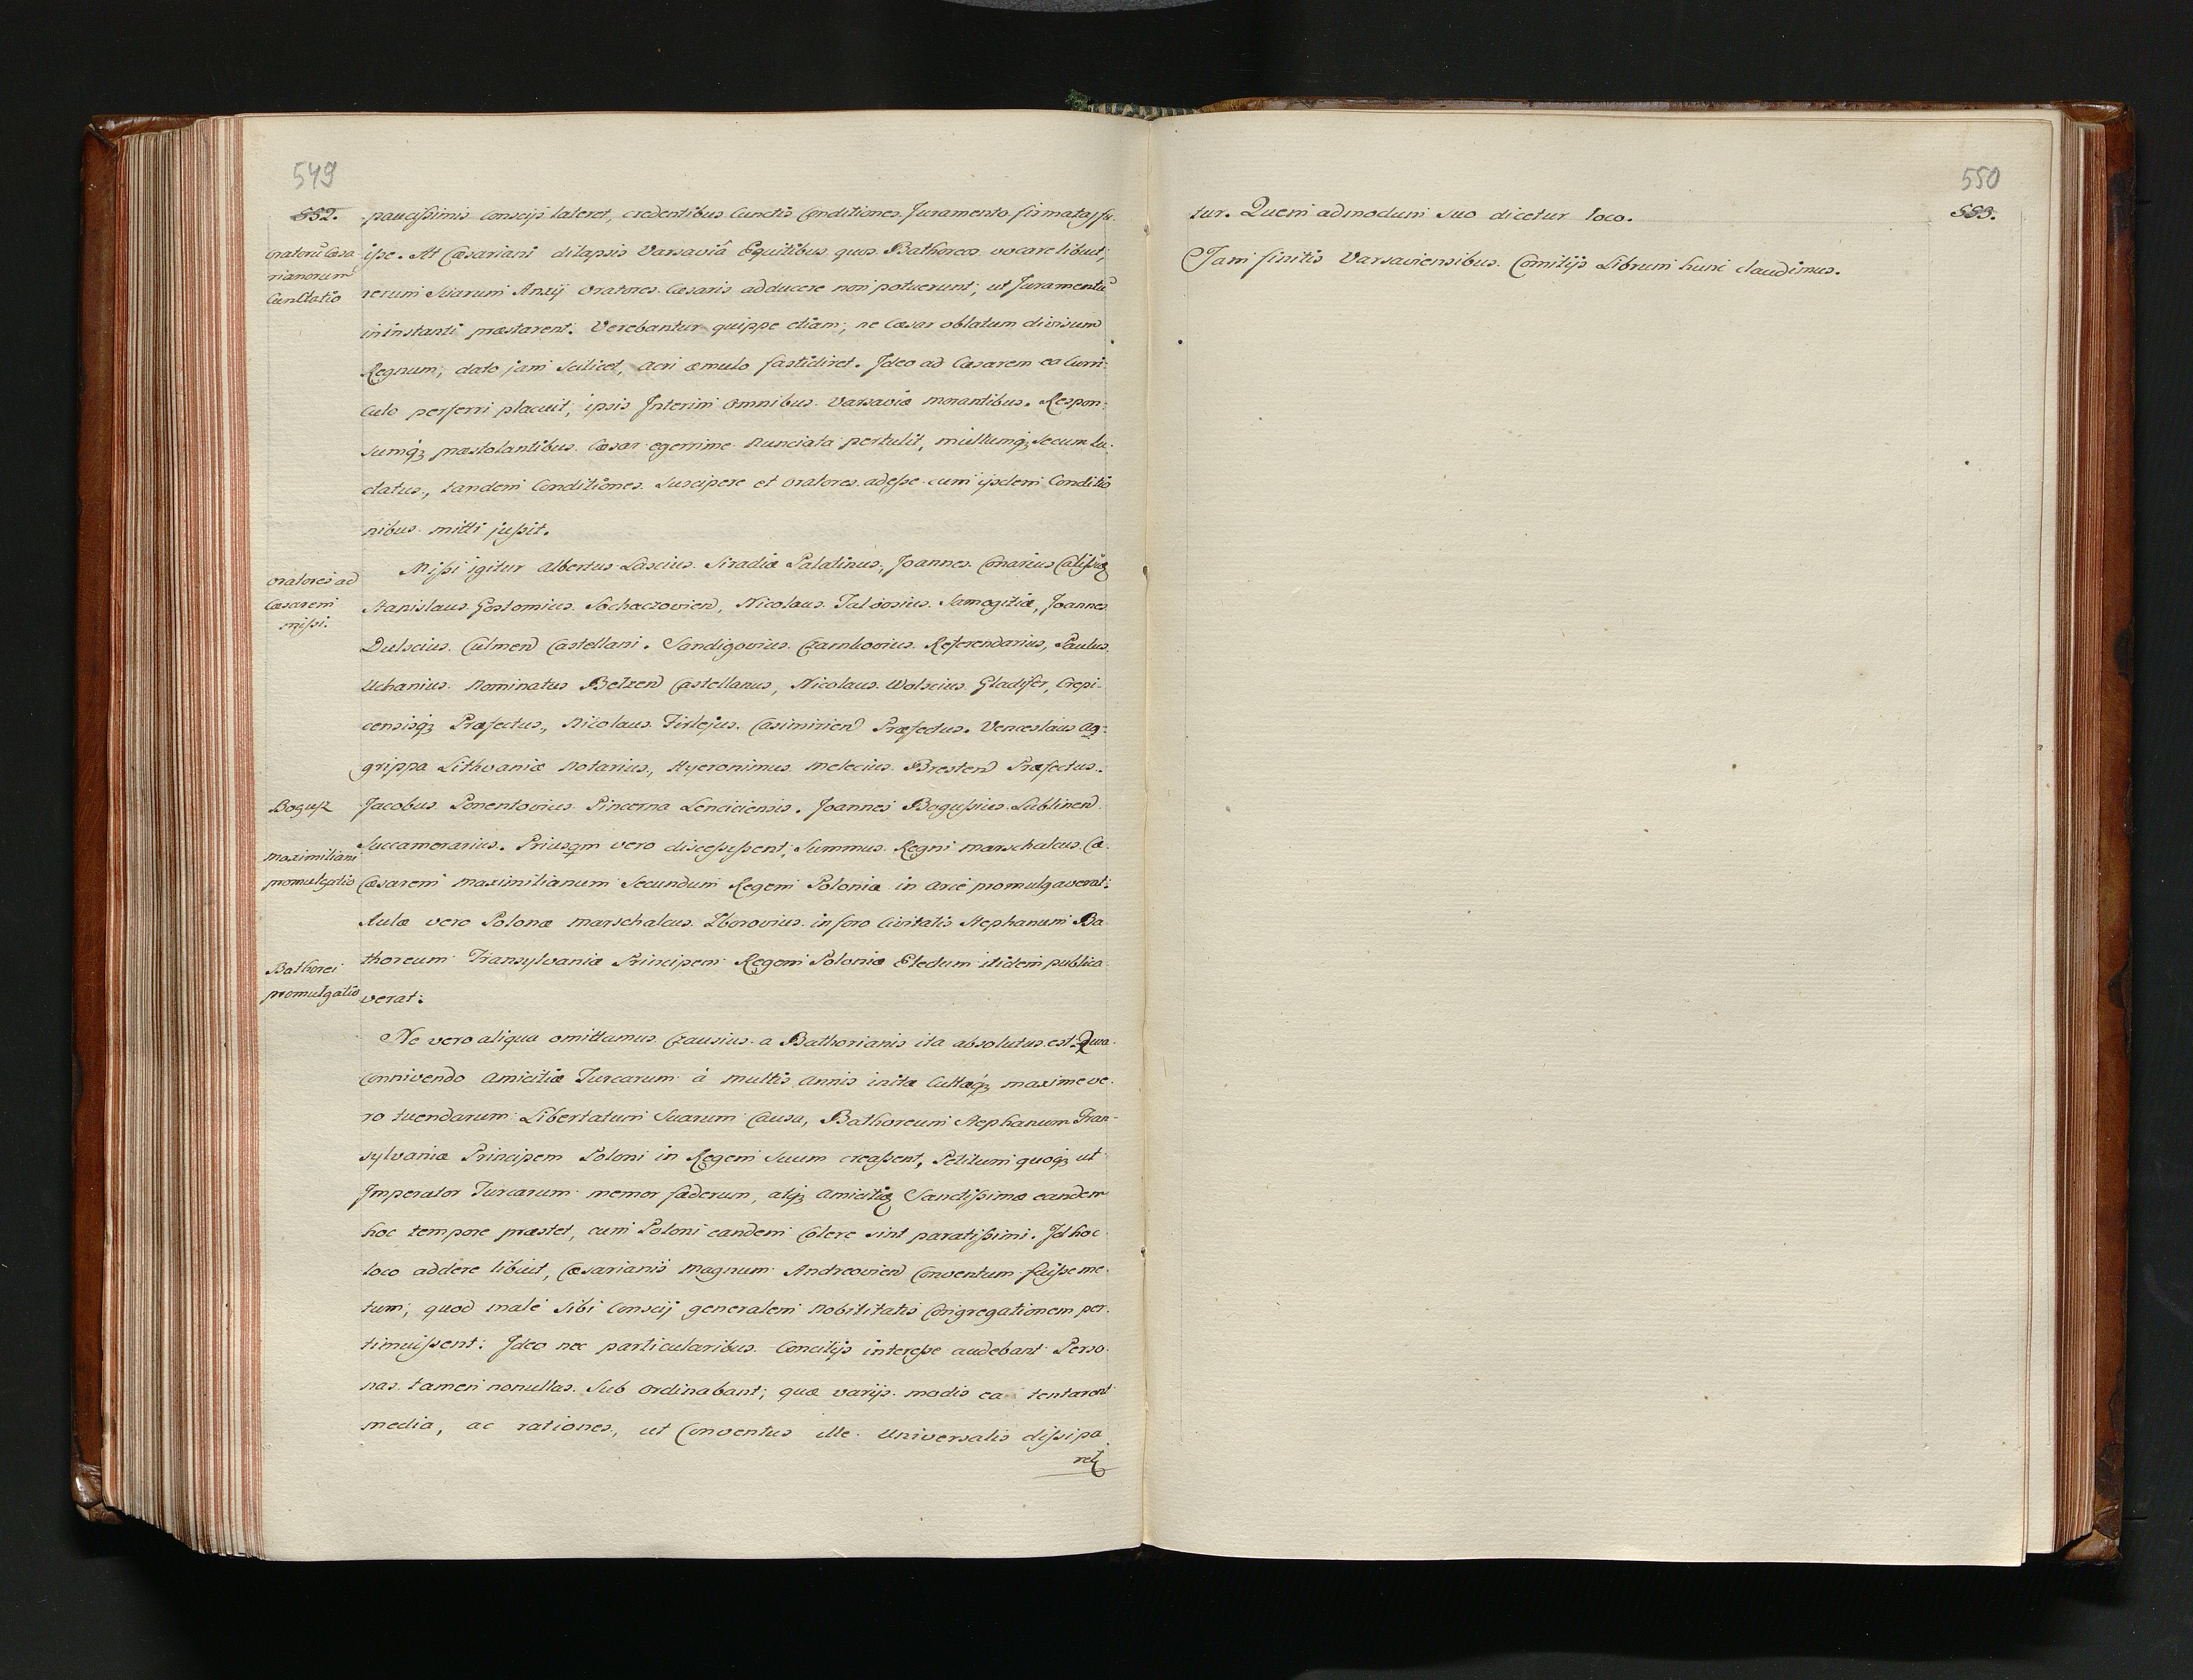 549
552.
paucißimis conscijs lateret, credentibus Cunctis Conditiones Juramento firmatas fu-
Oratorū Cæsa
rianorum
Cunctatio
iße. At Cæsariani dilapsis Varsaviâ Equitibus quos Bathoreos vocare libuit,
rerum Suarum Anxij Oratores Cæsaris adducere non potuerunt, ut Juramentū
in instanti præstarent. Verebantur quippe etiam, ne Cæsar oblatum divisum
Regnum, dato jam Scilicet, acri æmulo fastidiret. Ideo ad Cæsarem ea Curri-
culo perferri placuit, ipsis Interim omnibus Varsaviæ morantibus. Respon-
sumq; præstolantibus. Cæsar egerrime nunciata pertulit, multumq; Secum lu-
ctatus, tandem Conditiones Suscipere et oratores adeße cum ijsdem Conditio
nibus mitti jußit.
Oratores ad
Cæsarem
mißi.
Mißi igitur Albertus Lascius Siradiæ Palatinus, Joannes Conarius Calißiæ
Stanislaus Gostomius Sochaczovien, Nicolaus Talvosius Samogitiæ, Joannes
Dulscius Culmen Castellani. Sandigovius Czarnkovius Referendarius, Paulus
Uchanius Nominatus Belzen Castellanus, Nicolaus Wolscius Gladifer, Crepi-
censisq; Præfectus, Nicolaus Firlejus Casimirien Præfectus. Venceslaus Ag-
grippa Lithvaniæ Notarius, Hyeronimus Melecius Bresten Præfectus.
Bogusz
Jacobus Ponentovius Pincerna Lenciciensis. Joannes Bogußius Lublinen
Succamerarius. Priusqm vero disceßißent, Summus Regni Marschalcus Cæ
Maximiliani
promulgatio
Cæsarem Maximilianum Secundum Regem Poloniæ in Arce promulgaverat:
Aulæ vero Polonæ Marschalcus Zborovius in foro Civitatis Stephanum Ba
Bathorei
promulgatio
thoreum Transylvaniæ Principem Regem Poloniæ Electum itidem publica
verat.
Ne vero aliqua omittamus Czausius a Bathorianis ita absolutus est. Qua
Connivendo Amicitiæ Turcarum à multis annis initæ Cultæq; maxime ve-
ro tuendarum Libertatum Suarum Causa, Bathoreum Stephanum Tran-
sylvaniæ Principem Poloni in Regem Suum creaßent, Petitum quoq; ut
Imperator Turcarum memor fæderum, atq; Amicitiæ Sanctißimæ eandem
hoc tempore præstet, cum Poloni eandem Colere sint paratißimi. Id hoc
loco addere libuit, Cæsarianis Magnum Andreovien Conventum fuiße me-
tum, quod malè Sibi Conscij generalem Nobilitatis Congregationem per-
timuißent: Ideo nec particularibus Concilijs intereße audebant Perso-
nas tamen nonullas Sub ordinabant; quæ varijs modis ea tentarent
media, ac rationes, ut Conventus ille Universalis dißipa
ret
550
553.
tur. Quem admodum suo dicetur loco.
Jam finitis Varsaviensibus Comitijs Librum hunc claudimus.